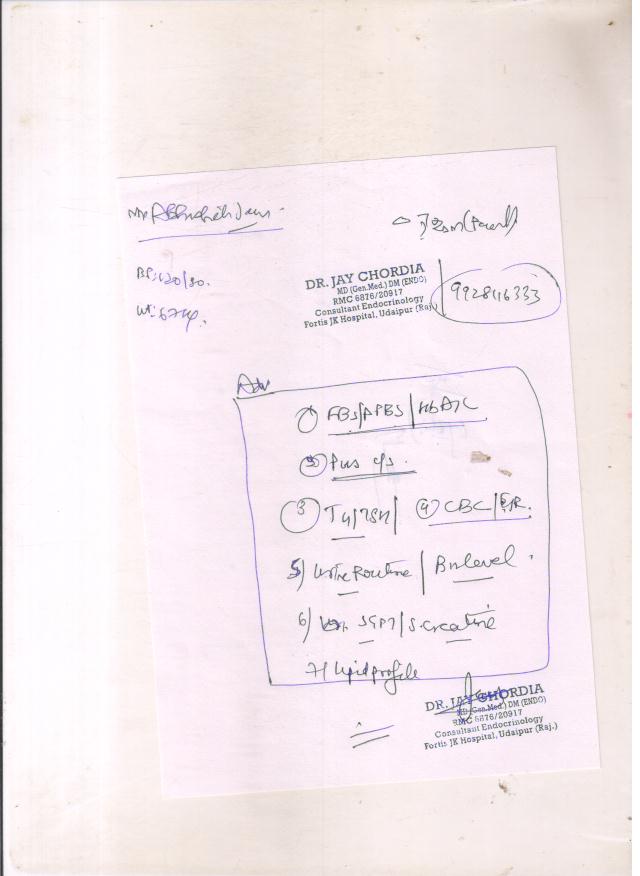 Mr Abhishek Jain
BP: 120/80.
Wt: 67 kg.
DR. JAY CHORDIA
MD (Gen.Med.) DM (ENDO)
RMC 6876/20917
Consultant Endocrinology
Fortis JK Hospital, Udaipur (Raj.)
9928416333
Adv
1) FBS/PPBS/HbA1C
2) Pus c/s.
3) T4/TSH/ 4) CBC/ESR.
5) Urine Routine / B12 level.
6) SGPT/S. creatine
7) Lipid profile
DR. JAY CHORDIA
MD (Gen.Med.) DM (ENDO)
RMC 6876/20917
Consultant Endocrinology
Fortis JK Hospital, Udaipur (Raj.)